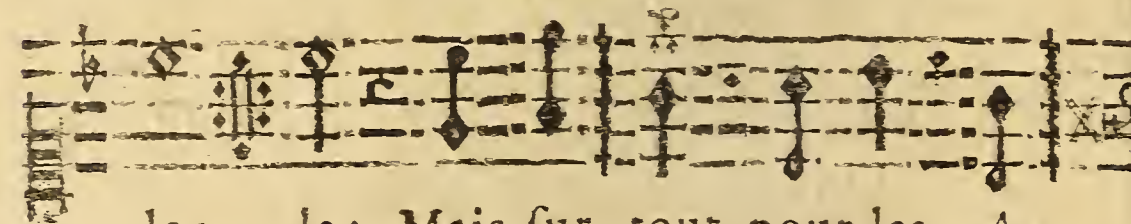 les. les: Mais ſur tout pour les A